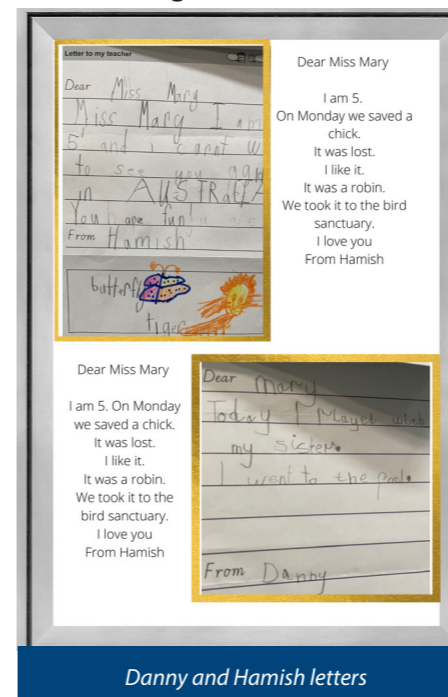 Letter to my teacher
Dear Miss Mary
Miss Mary I am
5! and i cannt w
to see you aga
in AUSTRalIA
You are fun!
From Hamish
butterfly
tiger
Dear Miss Mary
I am 5.
On Monday we saved a
chick.
It was lost.
I like it.
It was a robin.
We took it to the bird
sanctuary.
I love you
From Hamish
Dear Miss Mary
I am 5. On Monday
we saved a chick.
It was lost.
I like it.
It was a robin.
We took it to the
bird sanctuary.
I love you
From Hamish
Dear Mary
Today I Playet with
my sisters.
I went to the pool.
From Danny
Danny and Hamish letters